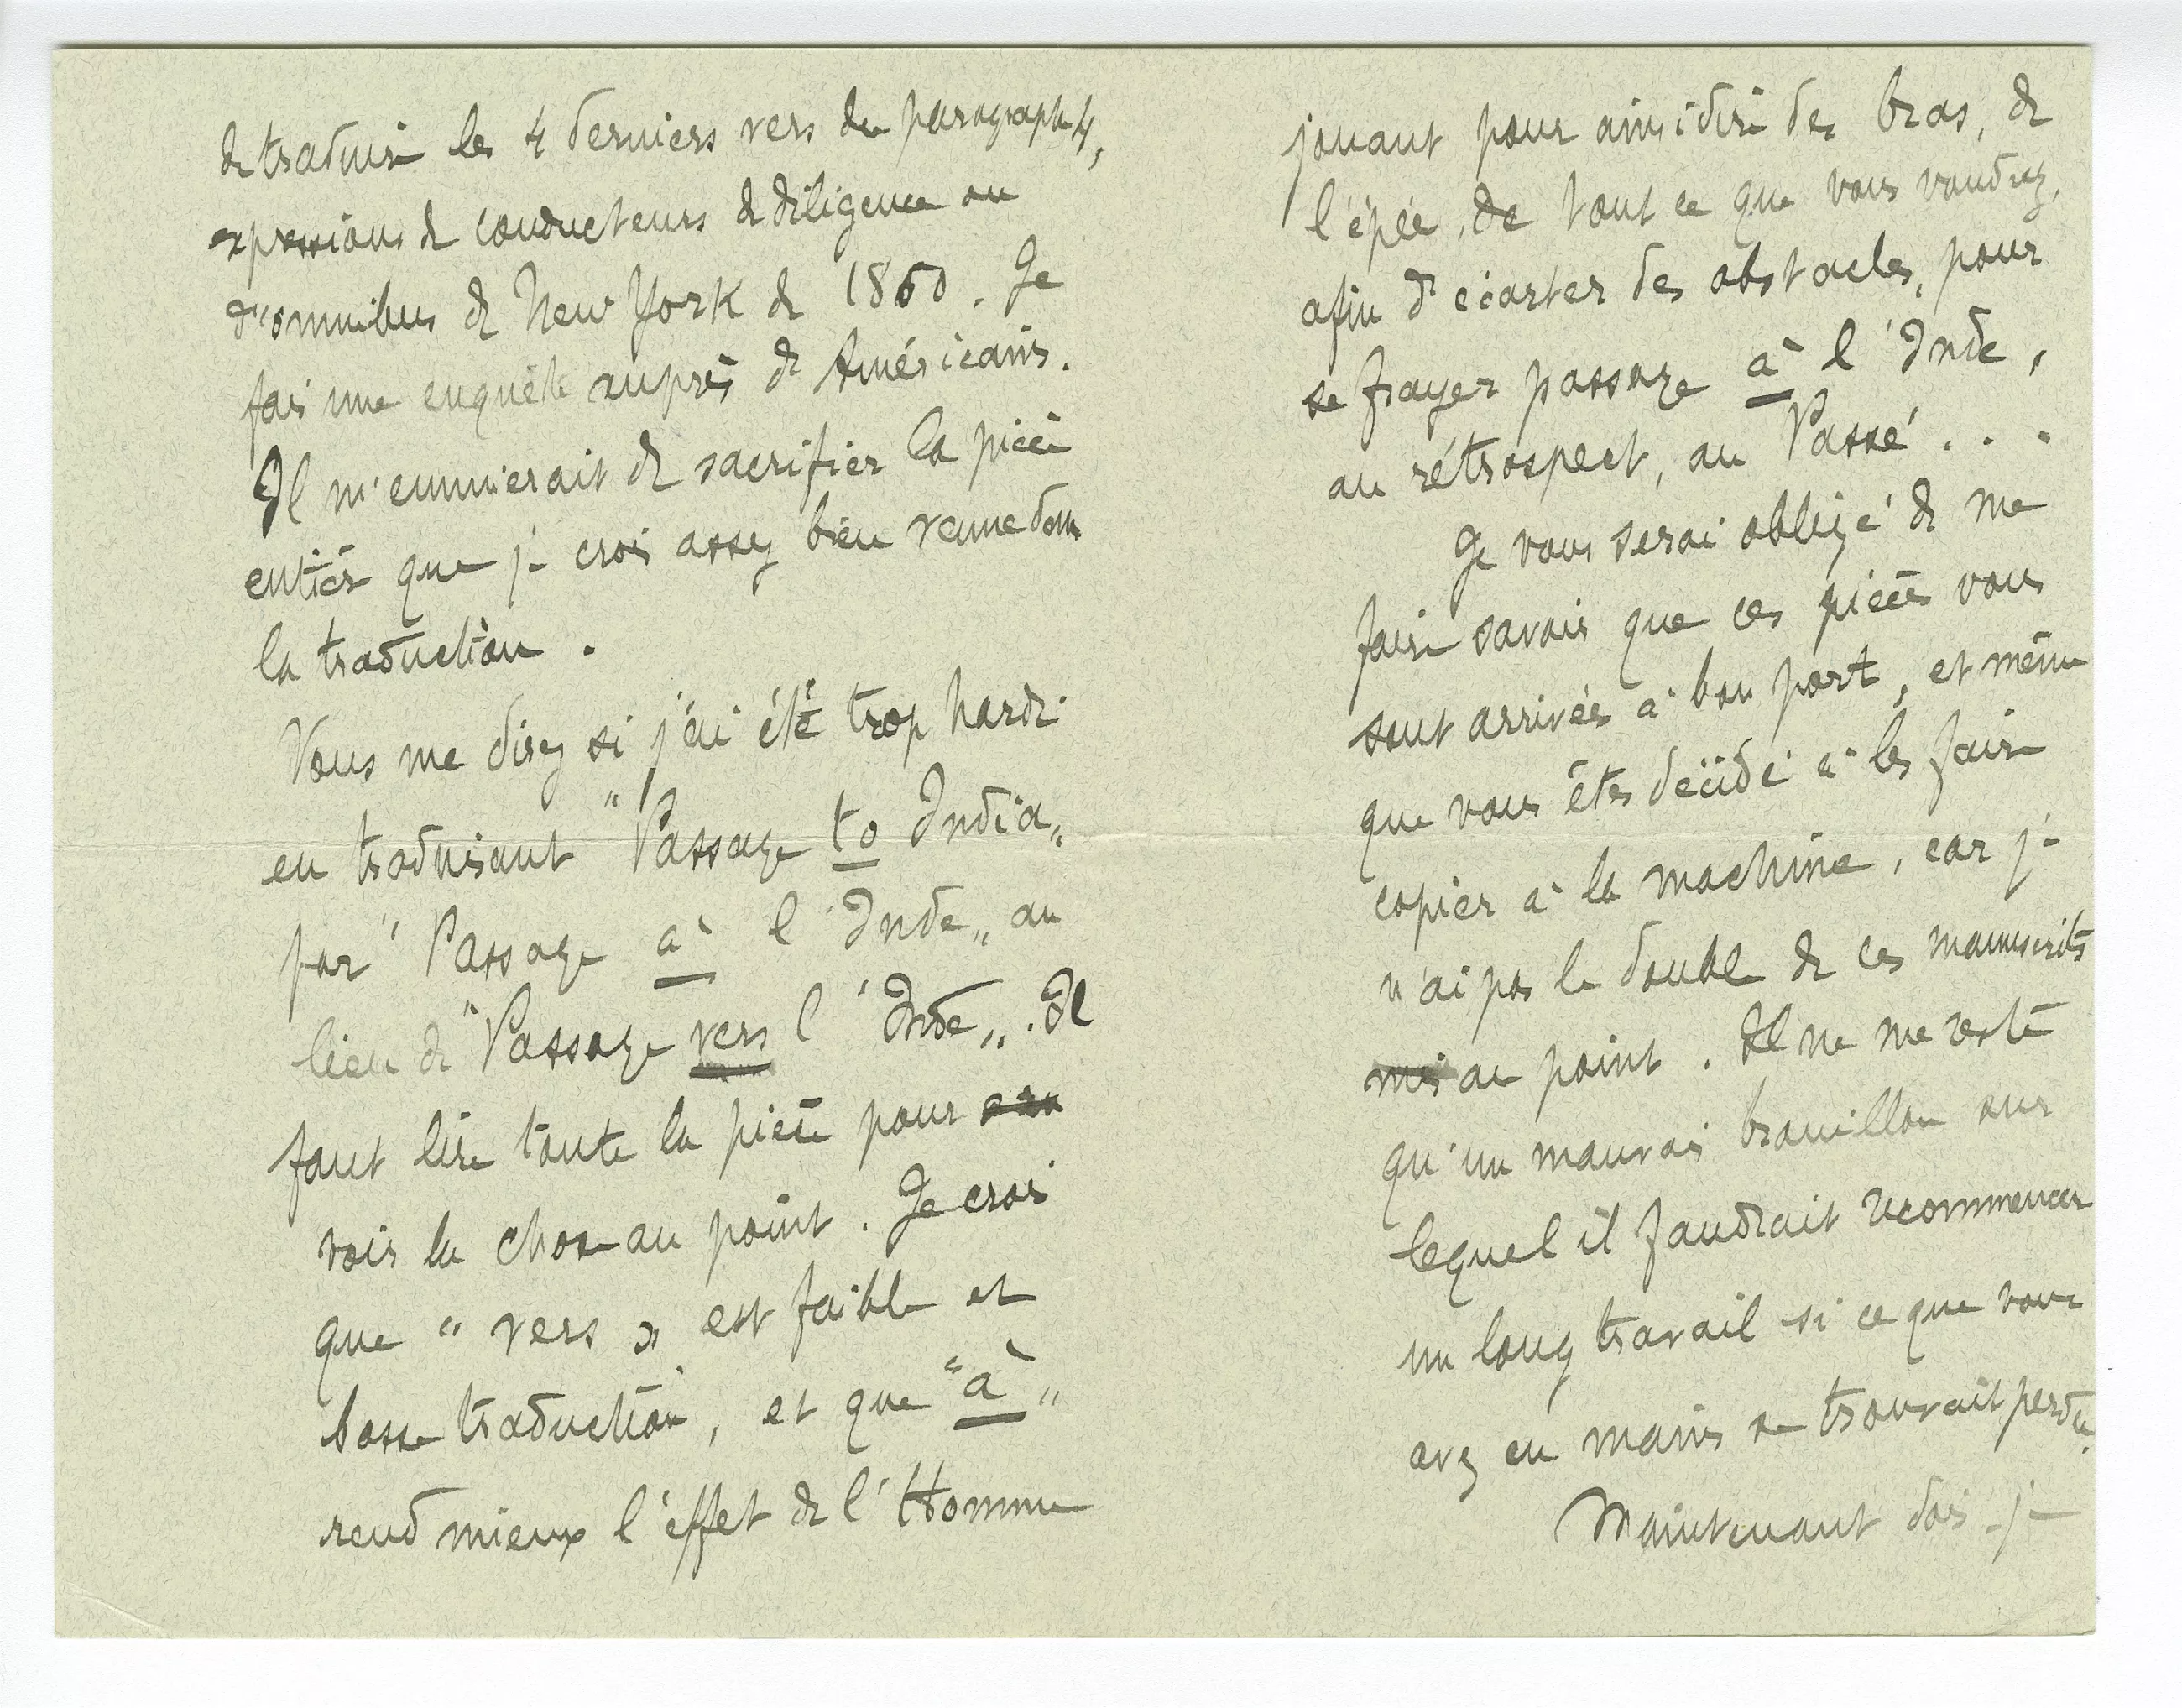 de traduire les 4 derniers vers du paragraphe 4,
expressions de conducteurs de diligence ou
d'omnibus de New York de 1860. Je
fais une enquête auprès de Américains.
Il m'ennuierait de sacrifier la pièce
entière que je crois assez bien venue dans
la traduction.
Vous me direz si j'ai été trop hardi
en traduisant "Passage to India"
par "Passage à l'Inde" au
lieu de "Passage vers l'Inde". Il
faut lire toute la pièce pour
voir la chose au point. Je crois
que "vers" est faible et
basse traduction, et que "à"
rend mieux l'effet de l'Homme
jouant pour ainsi dire des bras, de
l'épée, de tout ce que vous voudrez,
afin d'écarter des obstacles, pour
se frayer passage à l'Inde,
au rétrospect, au Passé...
Je vous serai obligé de me
faire savoir que ces pièces vous
sont arrivées à bon port, et même
que vous êtes décidé à les faire
copier à la machine, car je
n'ai pas le double de ces manuscrits
mis au point. Il ne me reste
qu'un mauvais brouillon sur
lequel il faudrait recommencer
un long travail si ce que vous
avez en mains se trouvait perdu.
Maintenant dois-je